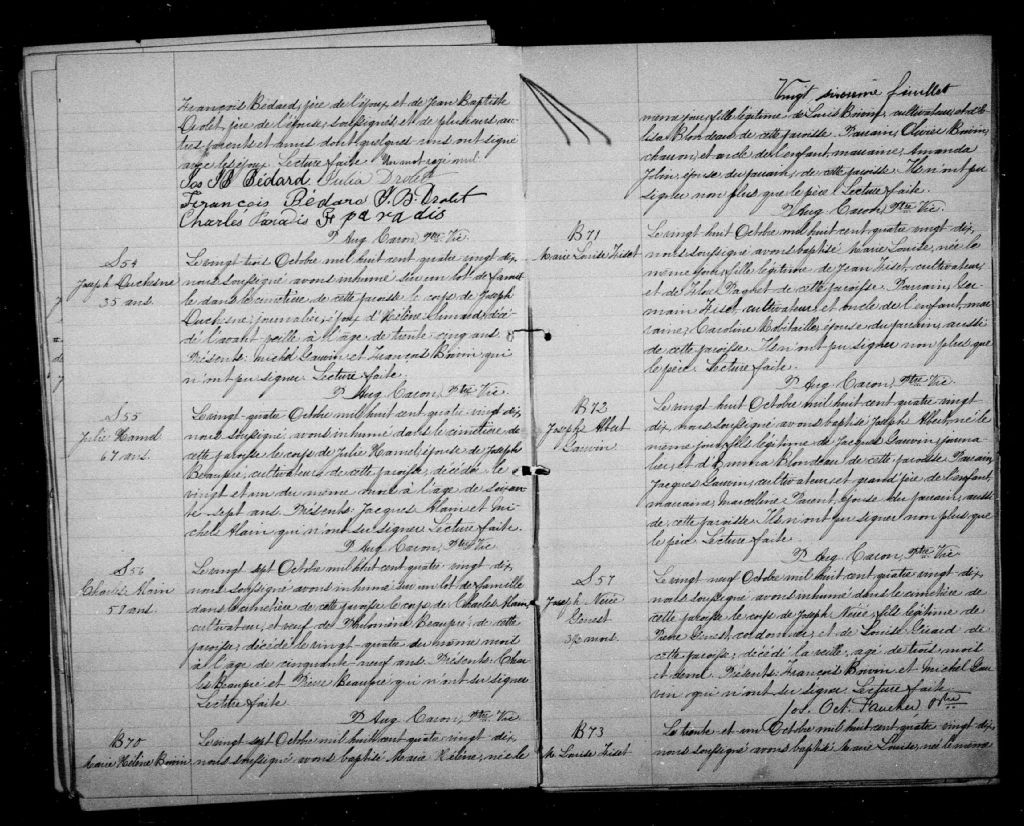 François Bédard, père de l'époux et de Jean Baptiste
Drolet, père de l'épouse, soussignés, et de plusieurs au-
tres parents et amis dont quelques-uns ont signé
avec les époux. Lecture faite. Un mot rayé nul.
Jos J B Bédard Julia Drolet
François Bédard J. B. Drolet
Charles Paradis Fr paradis
P Aug Caron, Ptre Vic
S54
Joseph Duchesne
35 ans.
Le vingt trois Octobre mil huit cent quatre vingt dix,
nous soussigné avons inhumé sur un lot de famil-
le dans le cimetière de cette paroisse le corps de Joseph
Duchesne, journalier, époux d'Hélène Simard, décé-
dé l'avant veille à l'âge de trente cinq ans.
Présents: Michel Gauvin et François Boivin qui
n'ont pu signer. Lecture faite.
P Aug Caron, Ptre Vic
S55
Julie Hamel
67 ans.
Le vingt-quatre Octobre mil huit cent quatre vingt dix,
nous soussigné avons inhumé dans le cimetière de
cette paroisse le corps de Julie Hamel, épouse de Joseph
Beaupré, cultivateur, de cette paroisse, décédée le
vingt et un du même mois à l'âge de soixan-
te sept ans. Présents: Jacques Alain et Mi-
chel Alain qui n'ont su signer. Lecture faite.
P Aug Caron, Ptre Vic
S56
Charles Alain
59 ans.
Le vingt sept Octobre mil huit cent quatre vingt dix,
nous soussigné avons inhumé sur un lot de famille
dans le cimetière de cette paroisse le corps de Charles Alain,
cultivateur, et veuf de Philomène Beaupré, de cette
paroisse, décédé le vingt-quatre du même mois
à l'âge de cinquante neuf ans. Présents: Char-
les Beaupré et Pierre Beaupré qui n'ont su signer
Lecture faite
P Aug Caron, Ptre Vic
B70
Marie Hélène Boivin
Le vingt sept Octobre mil huit cent quatre vingt dix,
nous soussigné avons baptisé Marie Hélène, née le
Vingt feuillet
même jour, fille légitime de Louis Boivin, cultivateur, et d'E-
lisa Blondeau de cette paroisse. Parrain, Olivier Boivin
charron, et oncle de l'enfant, marraine, Amanda
Jobin, épouse du parrain, de cette paroisse. Ils n'ont pu
signer non plus que le père. Lecture faite.
P Aug Caron, Ptre Vic.
B71
Marie Louise Fiset
Le vingt huit Octobre mil huit cent quatre vingt dix,
nous soussigné avons baptisé Marie Louise, née le
même jour, fille légitime de Jean Fiset, cultivateur,
et de Paquet de cette paroisse. Parrain, Ger-
main Fiset, cultivateur et oncle de l'enfant, mar-
raine, Caroline Robitaille, épouse du parrain, aussi
de cette paroisse. Ils n'ont pu signer non plus que
le père. Lecture faite.
P Aug Caron, Ptre Vic.
B72
Joseph Albert
Gauvin
Le vingt huit Octobre mil huit cent quatre vingt
dix, nous soussigné avons baptisé Joseph Albert, né le
même jour, fils légitime de Jacques Gauvin, journa-
lier, et d'Emma Blondeau de cette paroisse. Parrain,
Jacques Gauvin, cultivateur et grand père de l'enfant,
marraine, Marcelline Parent, épouse du parrain, aussi
de cette paroisse. Ils n'ont pu signer non plus que
le père. Lecture faite.
P Aug Caron, Ptre Vic.
S57
Joseph
Genest
3½ mois.
Le vingt neuf Octobre mil huit cent quatre vingt dix,
nous soussigné avons inhumé dans le cimetière de
cette paroisse le corps de Joseph fils légitime de
Pierre Genest, cordonnier, et de Louise Girard de
cette paroisse, décédé la veille, agé de trois mois
et demi. Présents: François Boivin et Michel Gau-
vin qui n'ont su signer. Lecture faite
Jos. Oct. Faucher Ptre
B73
M. Louise Fiset
Le trente et un Octobre mil huit cent quatre vingt dix,
nous soussigné avons baptisé Marie Louise, née le même